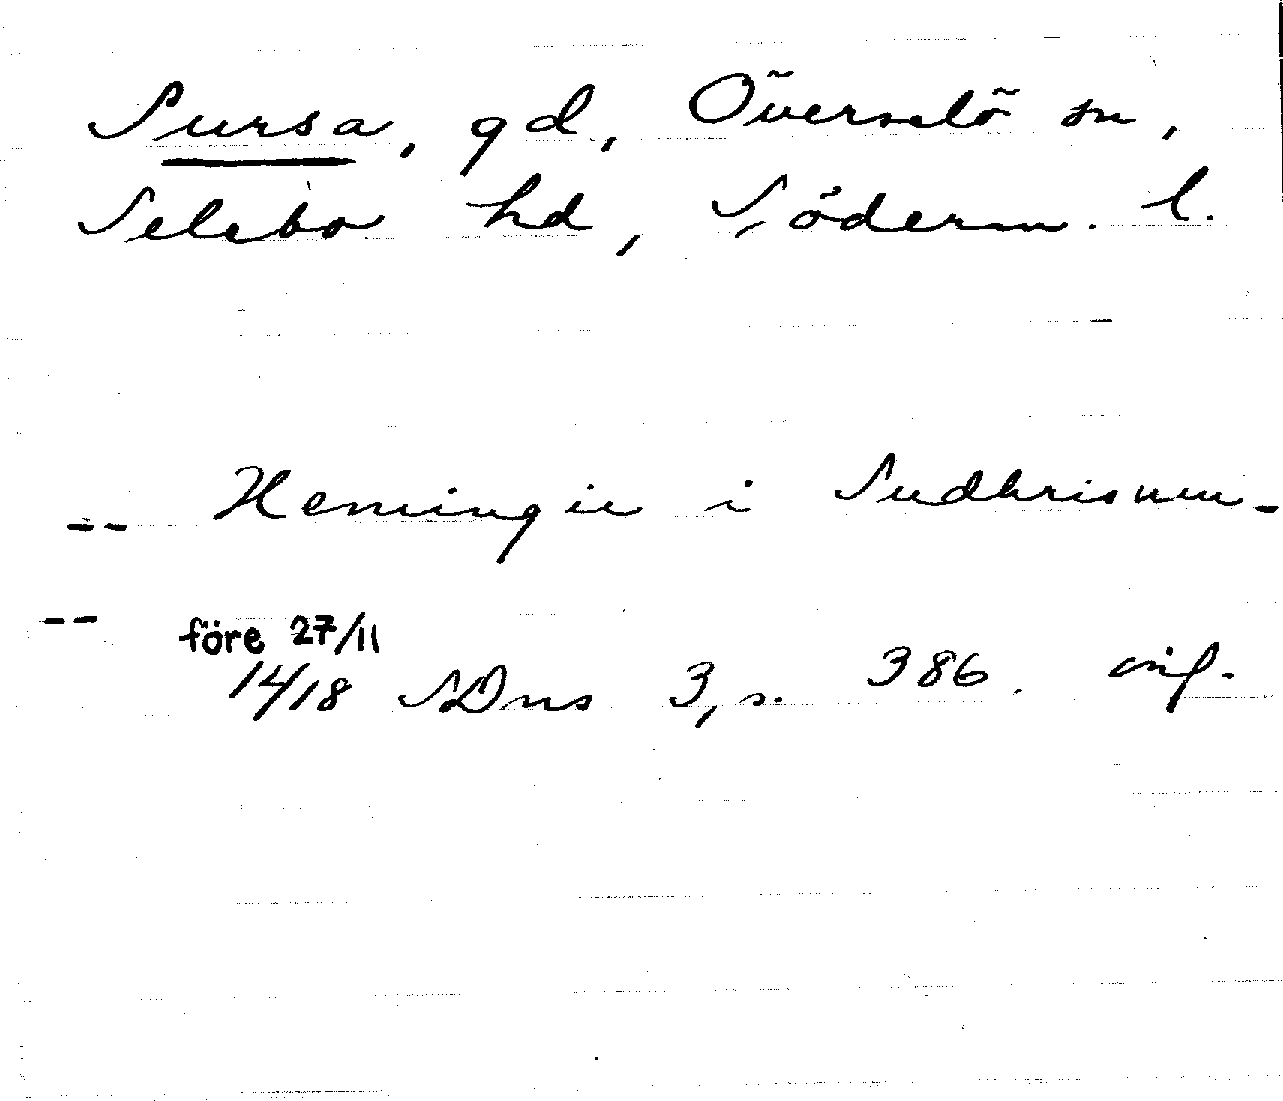 Sursa, gd, Överselö sn,
Selebo hd, Söderm. l.
-- Hemingie i Sudhrisum-
-- före 27/11
14/18 SDns 3, s. 386. orig.